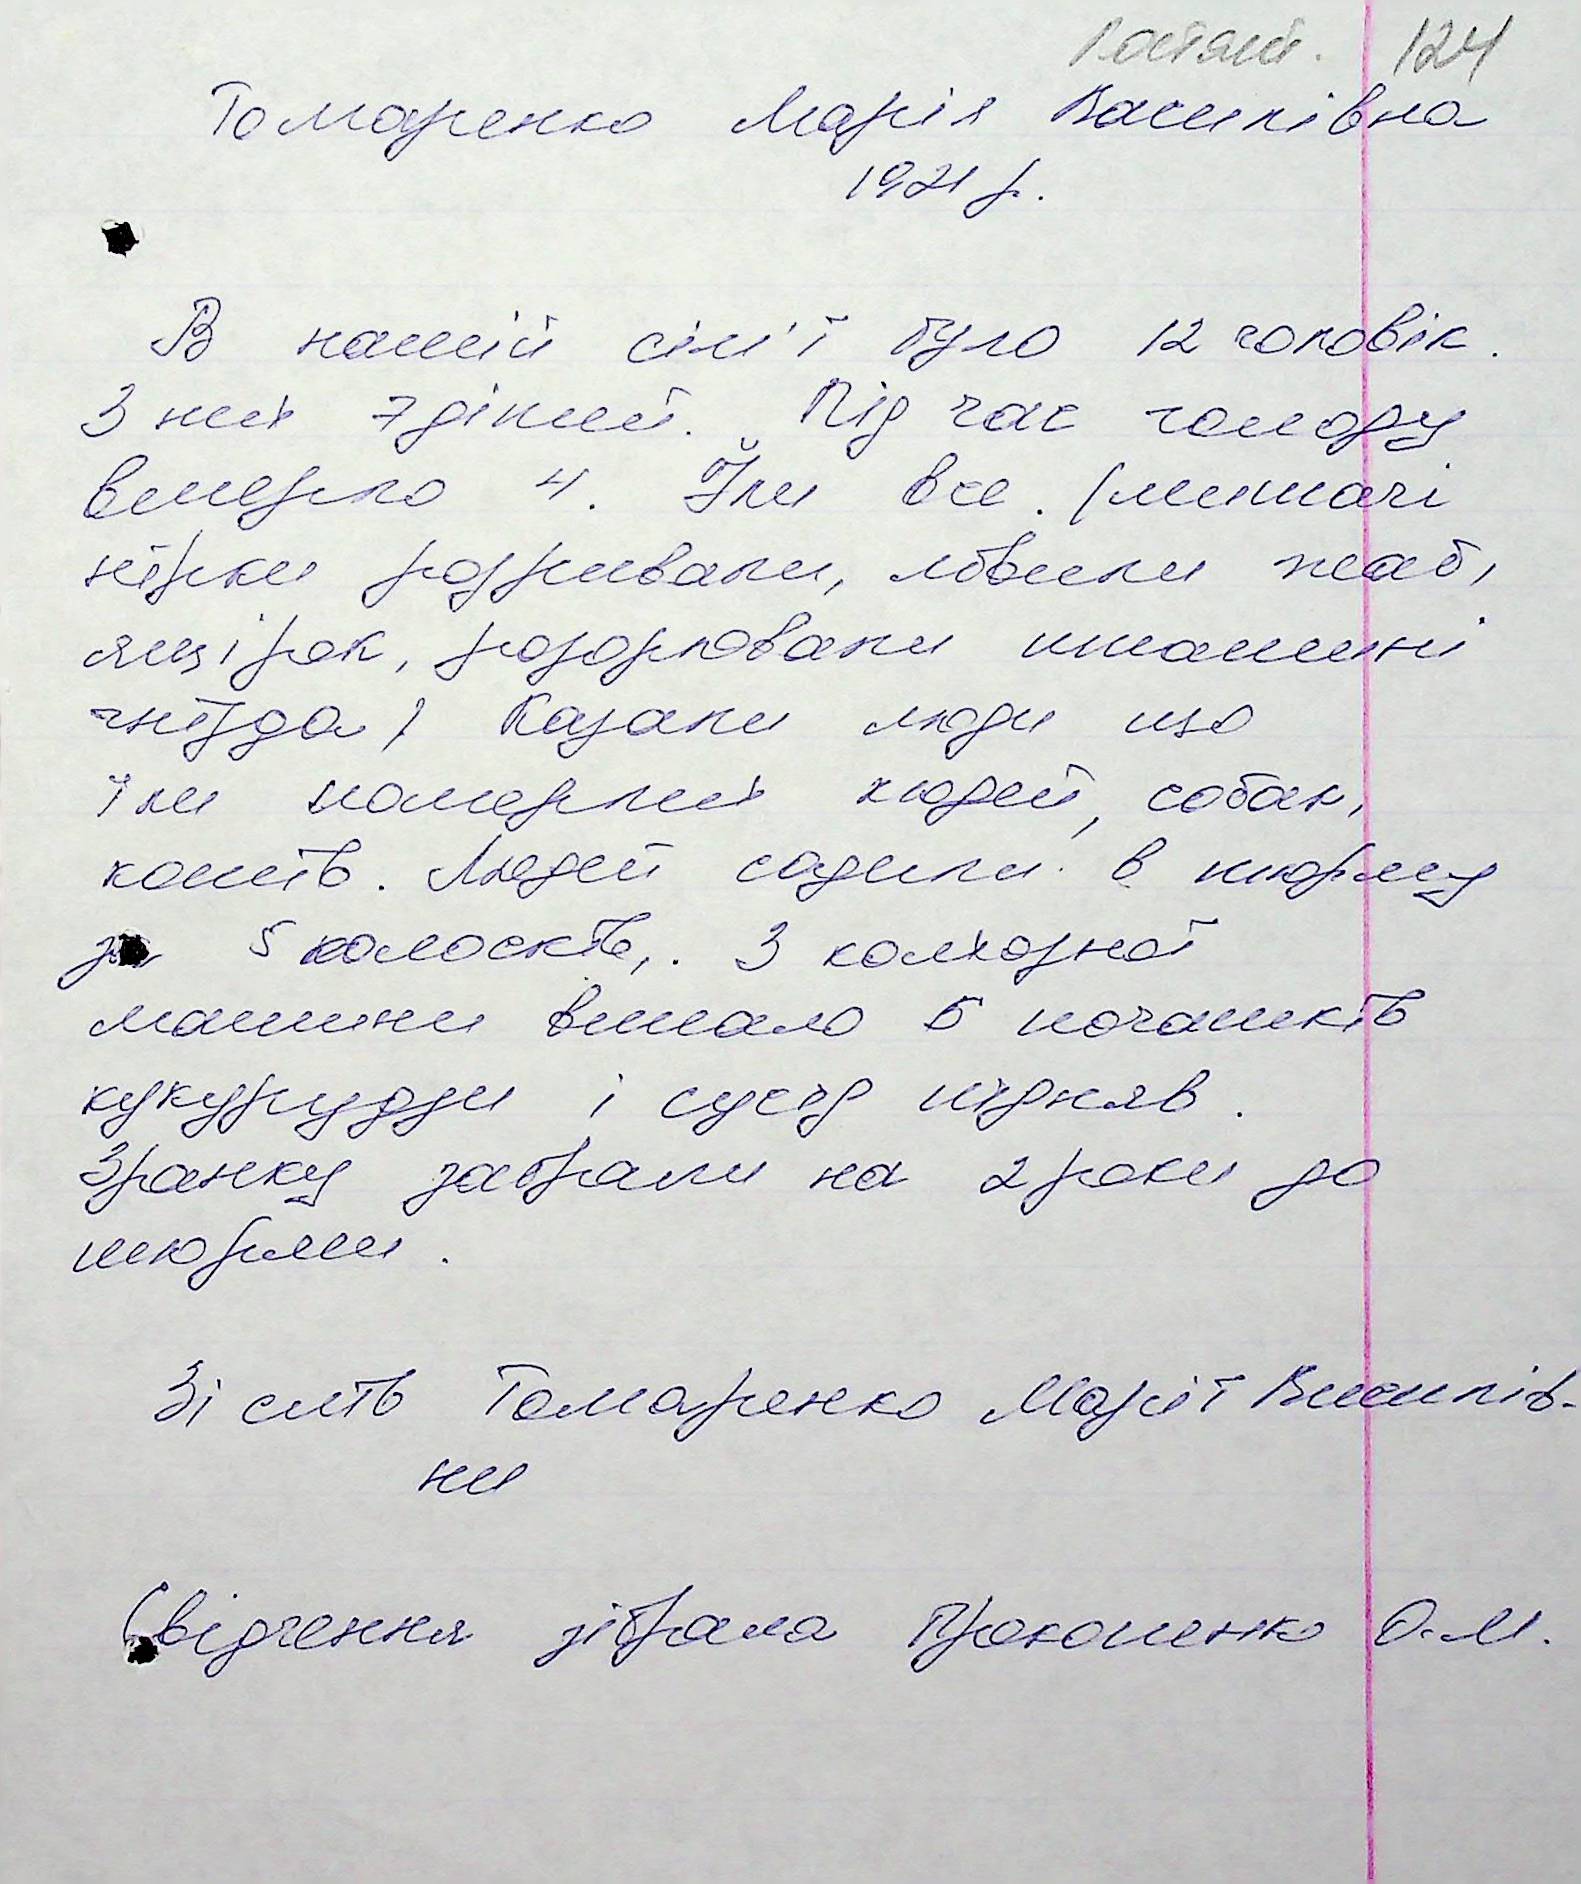 124
Гомаренко Марія Василівна
1921 р.
В нашій сім'ї було 12 чоловік.
З них 7 дітей. Під час голоду
вмерло 4. Їли все. (мишачі
нірки розривали, ловили жаб,
ящірок, розорювали пташині
гнізда) Казали люди що
їли померлих людей, собак,
котів. Людей садили в тюрму
за 5 колосків,. З колхозної
машини випало 5 початків
кукурудзи і сусід підняв.
Зранку забрали на 2 роки до
тюрми.
Зі слів Гомаренко Марії Василів-
ни
Свідчення зібрала Прокопенко О.М.